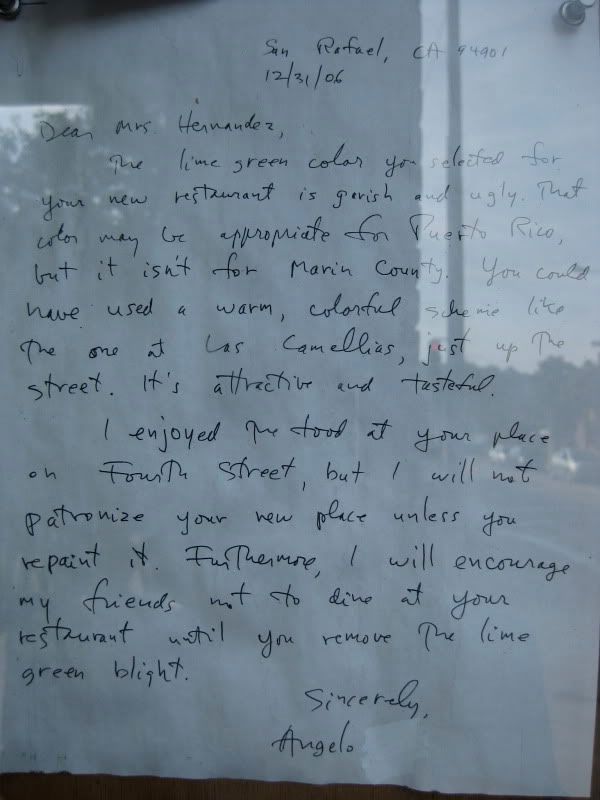 San Rafael, CA 94901
12/31/06
Dear Mrs. Hernandez,
The lime green color you selected for
your new restaurant is garish and ugly. That
color may be appropriate for Puerto Rico,
but it isn't for Marin County. You could
have used a warm, colorful scheme like
the one at Las Camellias, just up the
street. It's attractive and tasteful.
I enjoyed the food at your place
on Fourth Street, but I will not
patronize your new place unless you
repaint it. Furthermore, I will encourage
my friends not to dine at your
restaurant until you remove the lime
green blight.
Sincerely,
Angelo